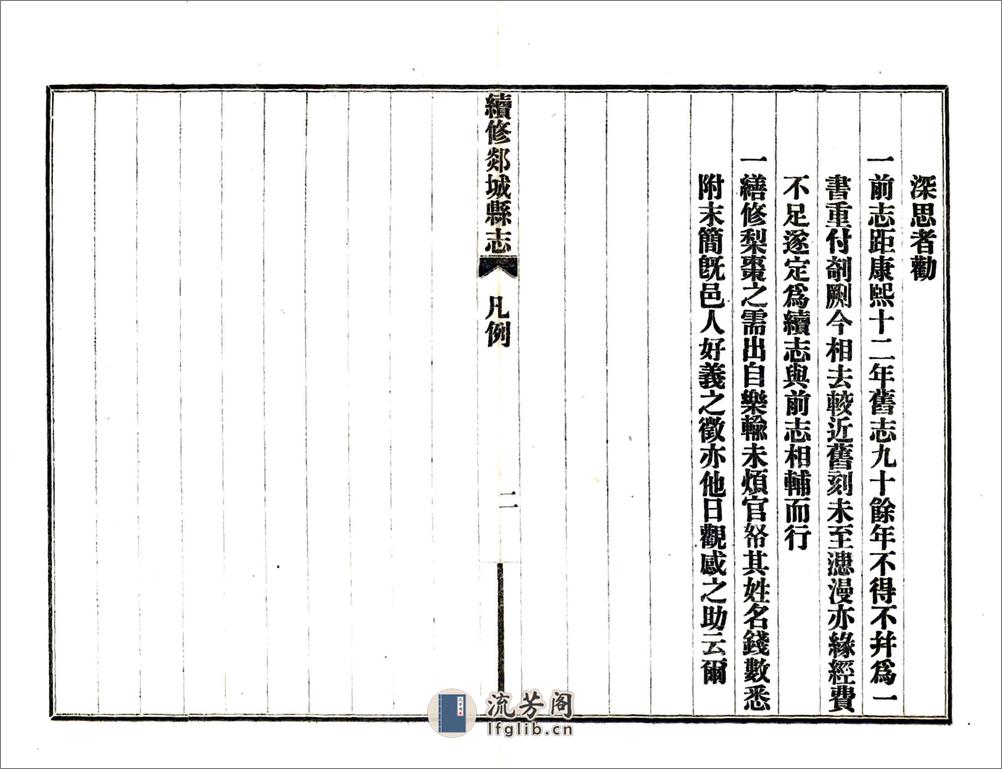 深思者勸
一前志距康熙十二年舊志九十餘年不得不幷爲一
書重付剞劂今相去較近舊刻未至漶漫亦緣經費
不足遂定爲續志與前志相輔而行
一繕修梨棗之需出自樂輸未煩官帑其姓名錢數悉
附末簡旣邑人好義之徵亦他日觀感之助云爾
續修郯城縣志
凡例
二
流芳阁
lfglib.cn